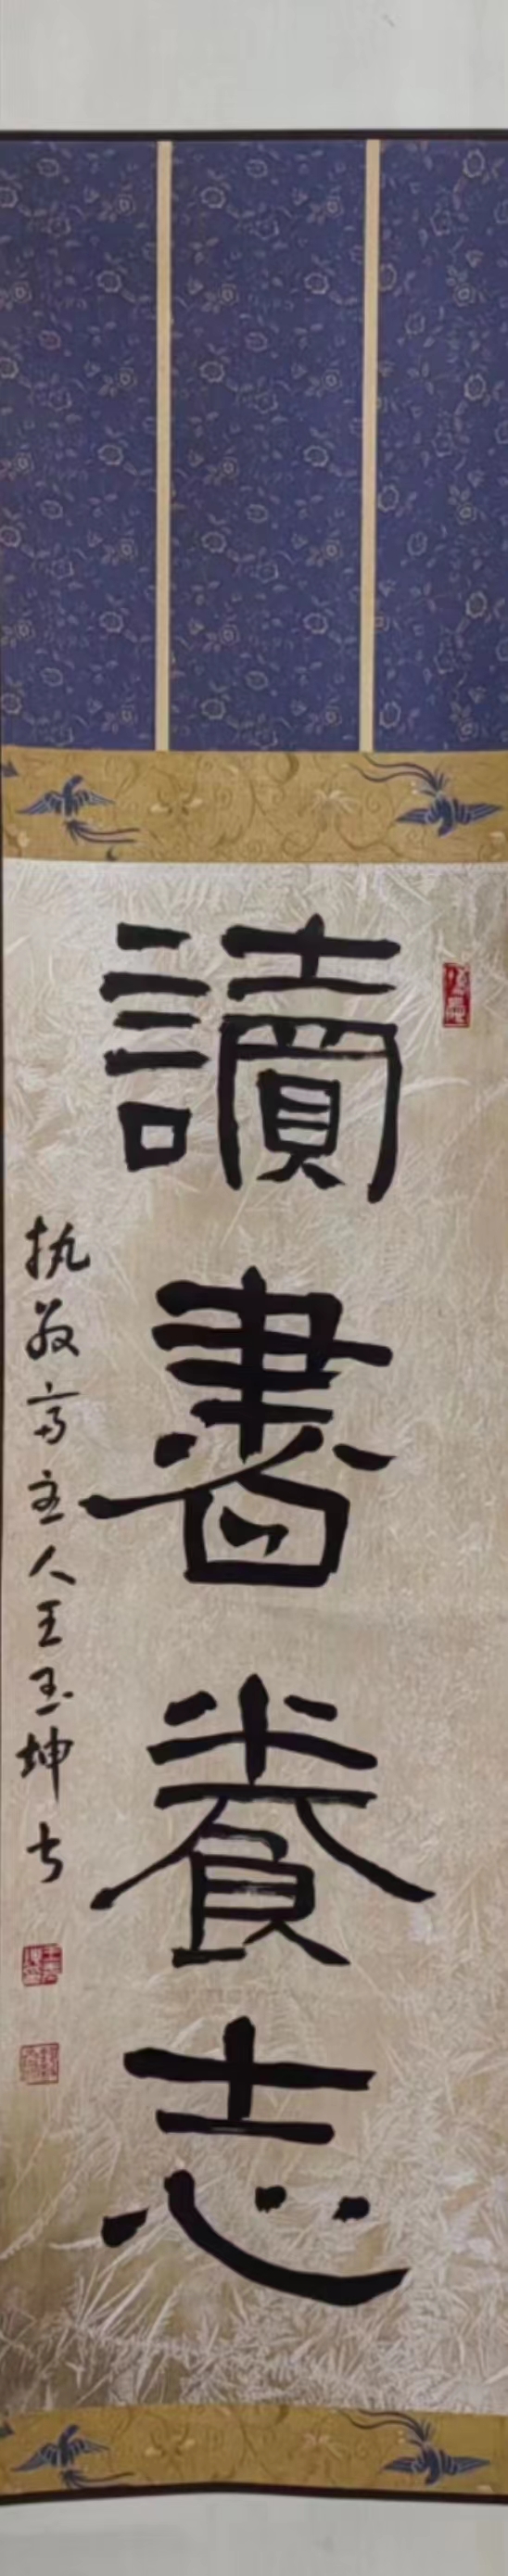 讀書養志
执敬斋主人王玉坤书